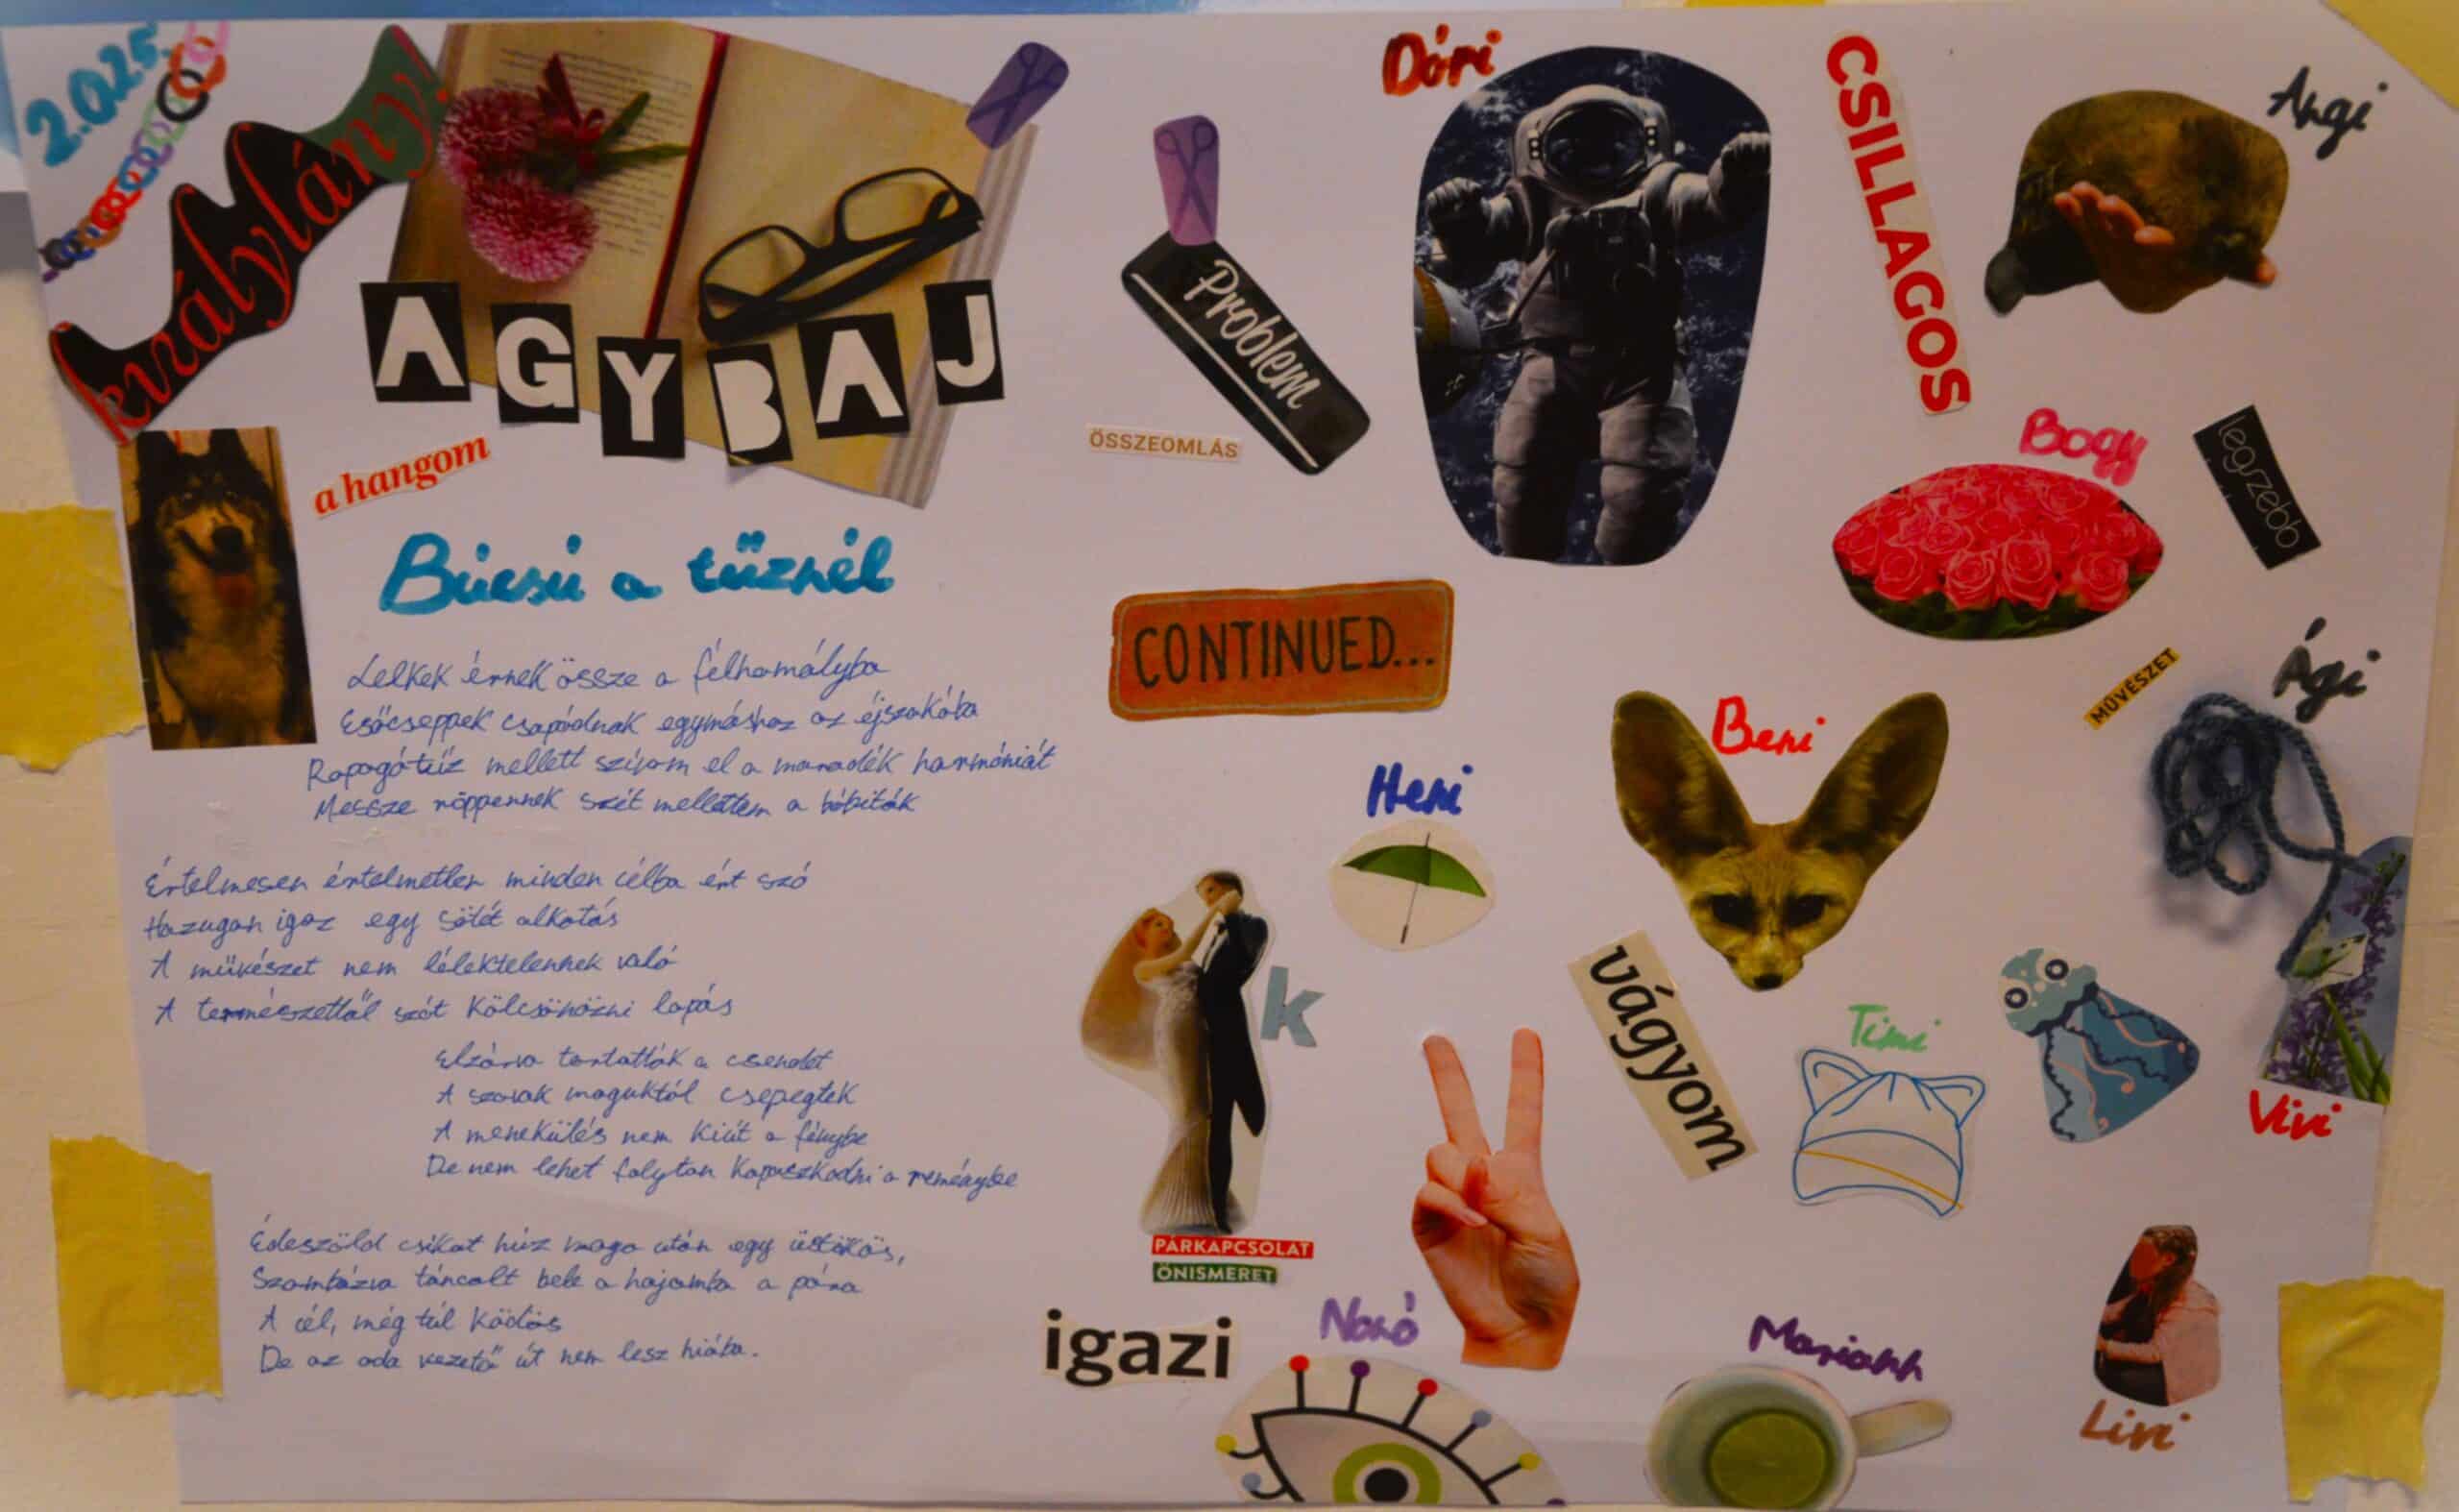 2.025.
királylány!
AGYBAJ
a hangom
Problem
ÖSSZEOMLÁS
Dóri
CSILLAGOS
Angi
Bogy
legszebb
Búcsú a tűznél
Lelkek érnek össze a félhomályba
Esőcseppek csapódnak egymáshoz az éjszakába
Ropogó tűz mellett szívom el a maradék harmóniát
Messze röppennek szét mellettem a bóbiták
Értelmesen értelmetlen minden célba ért szó
Hazugan igaz egy sötét alkotás
A művészet nem lélektelennek való
A természettől szót kölcsönözni lopás
Elzárva tartották a csendet
A szavak maguktól csepegtek
A menekülés nem kiút a fénybe
De nem lehet folyton kapaszkodni a reménybe
Édeszöld csíkot húz maga után egy üstökös,
Szambázva táncolt bele a hajamba a pára
A cél, még túl ködös
De az oda vezető út nem lesz hiába.
CONTINUED...
MŰVÉSZET
Ági
Beni
Heni
k
vágyom
Timi
Vivi
PÁRKAPCSOLAT
ÖNISMERET
igazi
Noró
Mariann
Livi